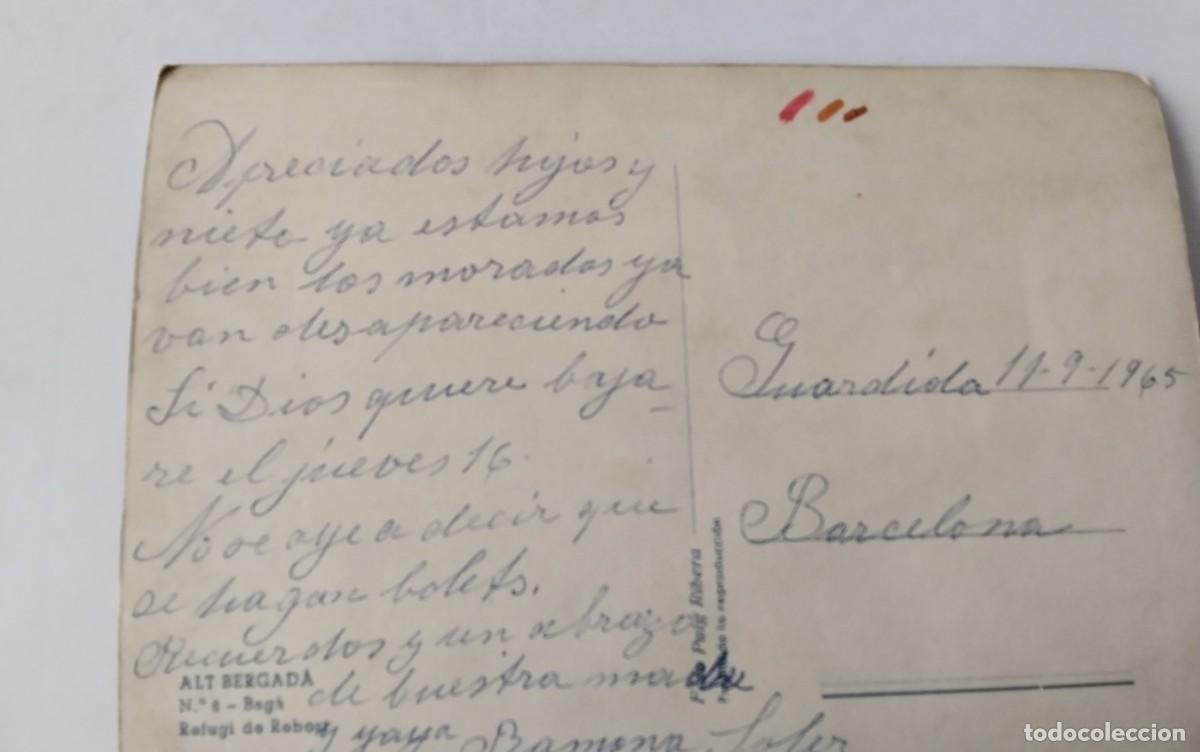 Apreciados hijos y
nieto ya estamos
bien los morados ya
van desapareciendo
Si Dios quiere baja-
re el jueves 16.
No se oye a decir que
se hagan bolets.
Recuerdos y un abrazo
de buestra madre
y yaya Ramona Soler
ALT BERGADÀ
N.º 8 - Bagà
Refugi de Rebost
Puig Ribera
la reproducción
Guardida 11-9-1965
Barcelona
todocoleccion